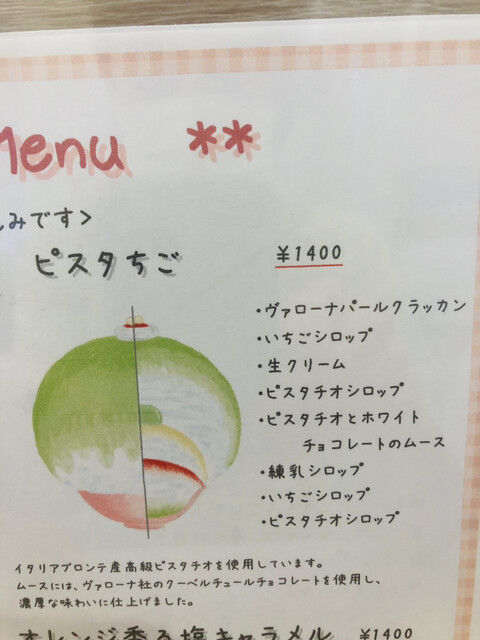 Menu **
みです>
ピスタちご ¥1400
・ヴァローナパールクラッカン
・いちごシロップ
・生クリーム
・ピスタチオシロップ
・ピスタチオとホワイト
チョコレートのムース
・練乳シロップ
・いちごシロップ
・ピスタチオシロップ
イタリアブロンテ産高級ピスタチオを使用しています。
ムースには、ヴァローナ社のクーベルチュールチョコレートを使用し、
濃厚な味わいに仕上げました。
オレンジ香る塩キャラメル ¥1400